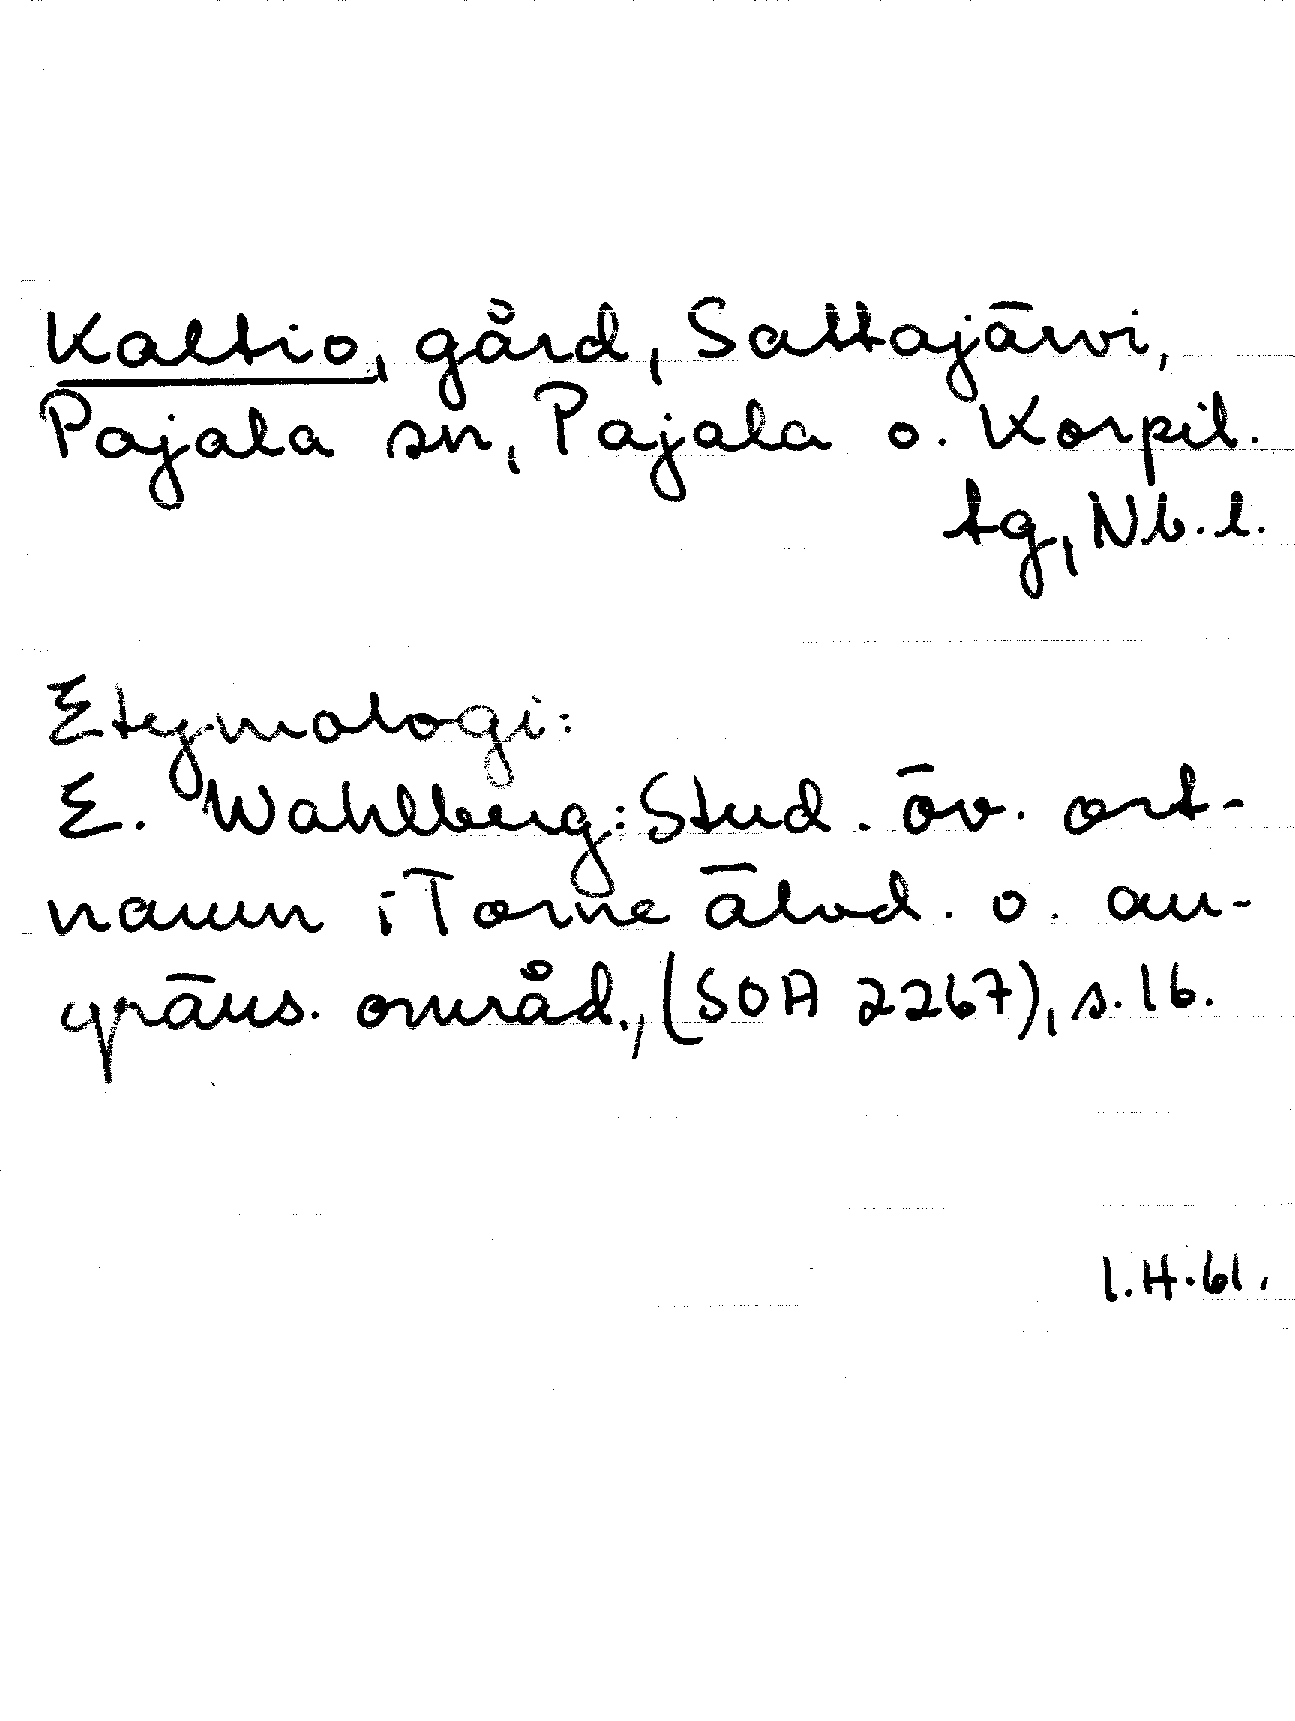 Kaltio, gård, Sattajärvi,
Pajala sn, Pajala o. Korpil.
tg, Nb. l.
Etymologi:
E. Wahlberg: Stud. öv. ort-
namn i Torne älvd. o. an-
gräns. områd., (SOA 2267), s. 16.
I. H. 61.